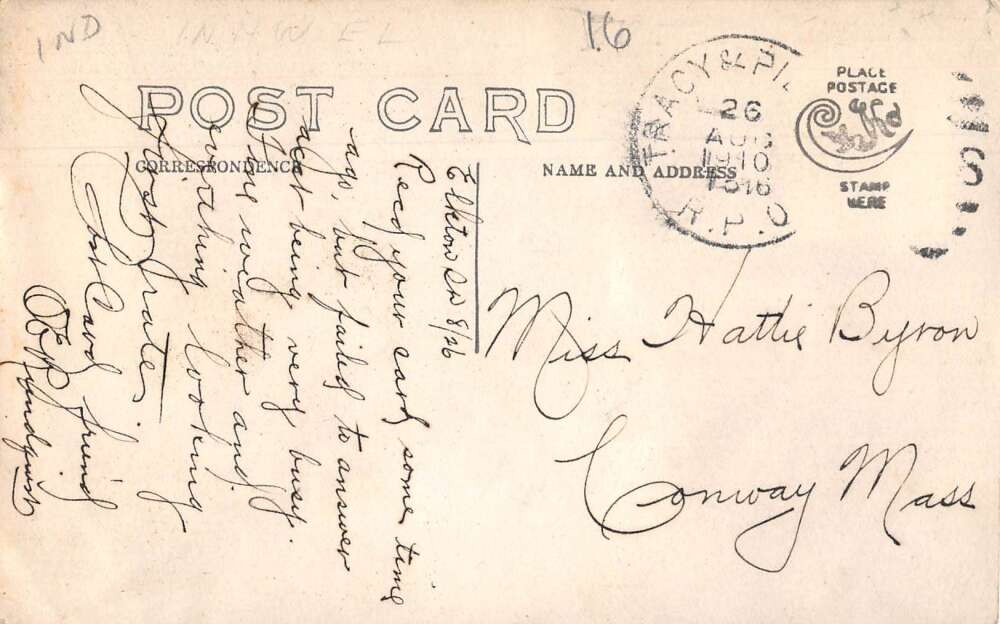 IND
16
POST CARD
CORRESPONDENCE
NAME AND ADDRESS
PLACE
POSTAGE
STAMP
HERE
TRACY & PI
26
AUG
1910
R.P.O
S
Elkton SD 8/26
Recd your card some time
ago, but failed to answer
acct being very busy.
Fine weather and
everything looking
first rate
Post Card friend
Lundquist
Miss Hattie Byron
Conway Mass